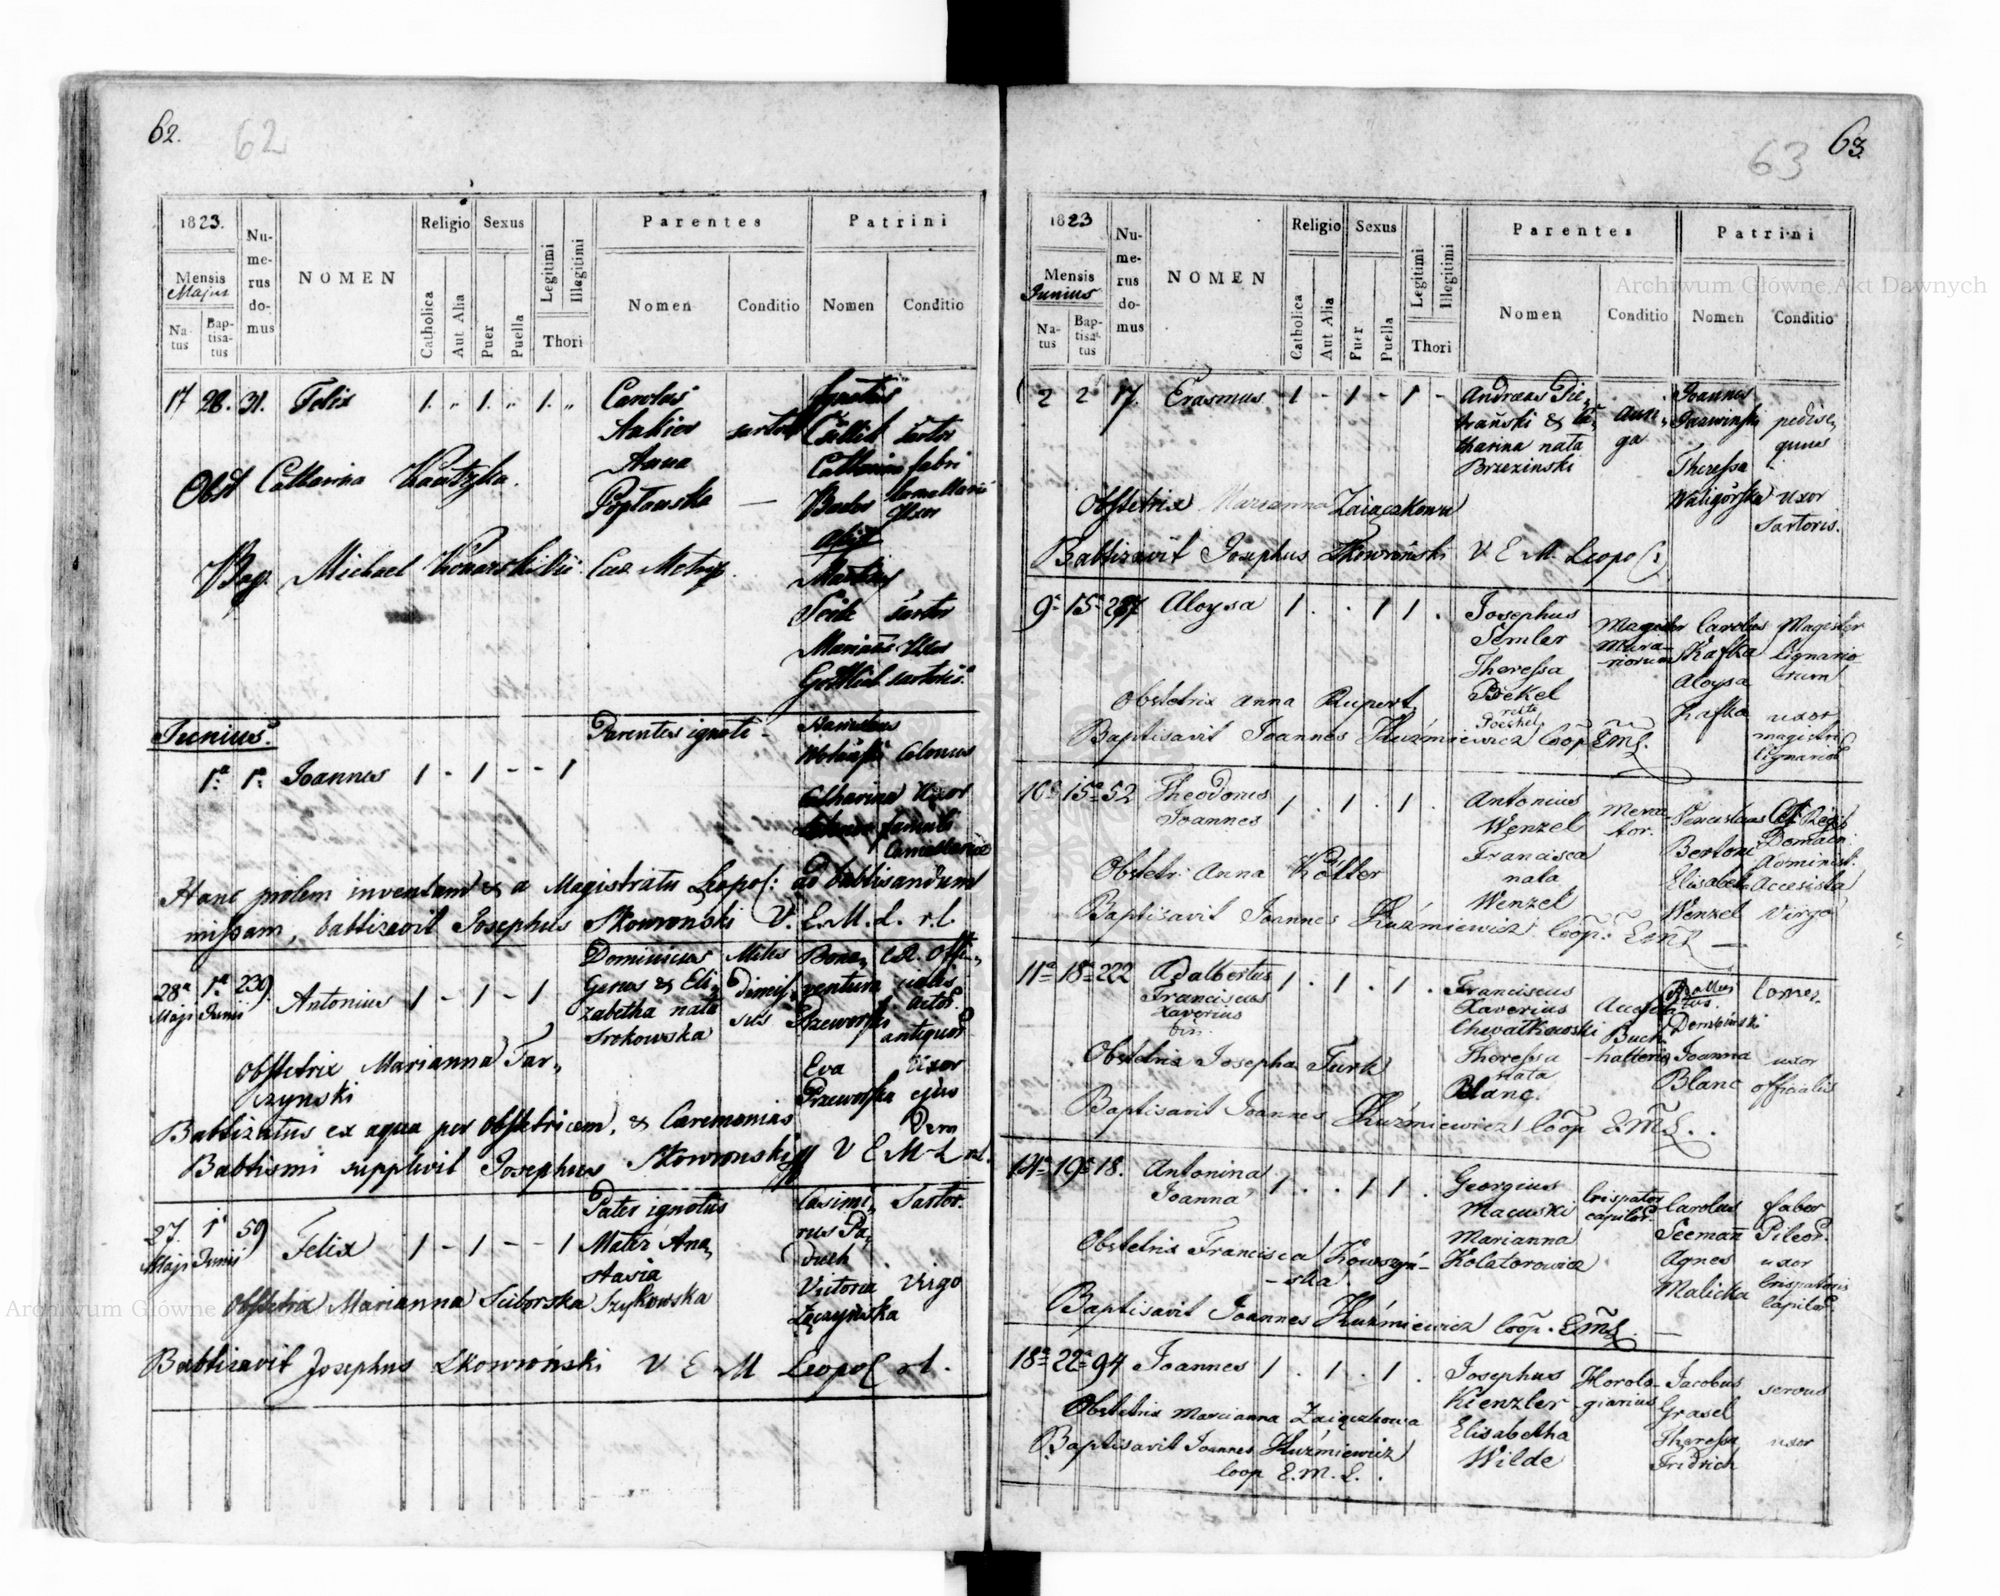 62.
62
1823.
Mensis
Majus
Natus
Baptisatus
Numerus domus
NOMEN
Religio
Catholica
Aut Alia
Sexus
Puer
Puella
Legitimi
Illegitimi
Thori
Parentes
Nomen
Conditio
Patrini
Nomen
Conditio
17 28. 31. Felix 1. „ 1. „ 1. „
Carolus
sartor
Anna
Popławska —
Sartor
Catharina fabri
Uxor
Obst Catharina
Bap. Michael
Martinus
Sartor
Marianna Uxor
Gottlieb sartoris.
Junius.
1ª 1ª Joannes 1 - 1 - - 1
Parentes ignoti -
Stanislaus
Colonus
Catharina Uxor
famuli
Cameralis
Hanc prolem inventam & a Magistratu Leopol: ad babtisandum
missam, babtizavit Josephus Skowronski V. E. M. L. r.l.
28ª Maji 1ª Junii 239. Antonius 1 - 1 - 1
Dominicus
Gurus & Eli-
zabetha nata
Srokowska
Miles
Dimis-
sus
Bona-
ventura
Przeworski
C.R. Offi-
cialis
antiquor
Eva
Przeworska
Uxor
ejus
Dem
Obstetrix Marianna Tar-
czynski
Babtizatus ex aqua per Obstetricem, & Caremonias
Babtismi supplevit Josephus Skowronski V E M L r.l.
27. Maji 1ª Junii 59 Felix 1 - 1 - - 1
Pater ignotus
Mater Ana-
stasia
Szykowska
Casimi-
rus Pa-
duch
Sartor.
Victoria
Łączyńska
Virgo
Obstetrix Marianna Sciborska
Babtizavit Josephus Skowroński V E M Leopol r.l.
63.
63
1823
Mensis
Junius
Natus
Baptisatus
Numerus domus
NOMEN
Religio
Catholica
Aut Alia
Sexus
Puer
Puella
Legitimi
Illegitimi
Thori
Parentes
Nomen
Conditio
Patrini
Nomen
Conditio
2 2 17. Erasmus 1 - 1 - 1 -
Andreas Pie-
trański & Ca-
tharina nata
Brzezinski
Auri-
ga
Joannes
pedise-
quus
Theressa
Waligórska
uxor
Sartoris.
Obstetrix Marianna Zaiączkowa
Babtizavit Josephus Skowroński V E M. Leopol
9ª 15ª 237 Aloysa 1 . . 1 1 .
Josephus
Semler
Theressa
Bekel
recte
Poeckel
Magister
Mura-
riorum
Carolus
Kafka
Aloysa
Kafka
Magister
lignario-
rum
uxor
magistri
lignarior
Obstetrix Anna Rupert
Baptisavit Joannes Kuźmiewicz Coop EML.
10ª 15ª 52 Theodorus
Joannes 1 . 1 . 1 .
Antonius
Wenzel
Francisca
nata
Wenzel
Merca-
tor.
Venceslaus
Bertoni
Elisabeta
Wenzel
Domain
Administ.
Accesista
Virgo
Obstetr. Anna Kolter
Baptisavit Joannes Kuźmiewicz Coop: EML —
11ª 18ª 222 Adalbertus
Franciscus
Xaverius
1 . 1 . 1 .
Franciscus
Xaverius
Chwatkowski
Theressa
nata
Blanc.
Buch-
halteria
Dembinski
Comes.
Joanna
Blanc
uxor
officialis
Obstetrix Josepha Turk
Baptisavit Joannes Kuźmiewicz Coop EML.
14ª 19ª 18. Antonina
Joanna 1 . . 1 1 .
Georgius
Macuski
Marianna
Kolatorowicz
Crispator
capillor.
Carolus
Seeman
Agnes
Malicka
faber
Pileor.
uxor
Crispatoris
Capillor.
Obstetrix Francisca Kowszyń-
ska
Baptisavit Joannes Kuźmiewicz Coop. EML. —
18ª 22ª 94 Joannes 1 . 1 . 1 .
Josephus
Kienzler
Elisabetha
Wilde
Horolo-
giarius
Jacobus
Grasel
Theressa
Fridrich
servus
uxor
Obstetrix Marianna Zaiączkowa
Baptisavit Joannes Kuźmiewicz
Coop E.M.L.
Archiwum Główne Akt Dawnych
Archiwum Główne Akt Dawnych